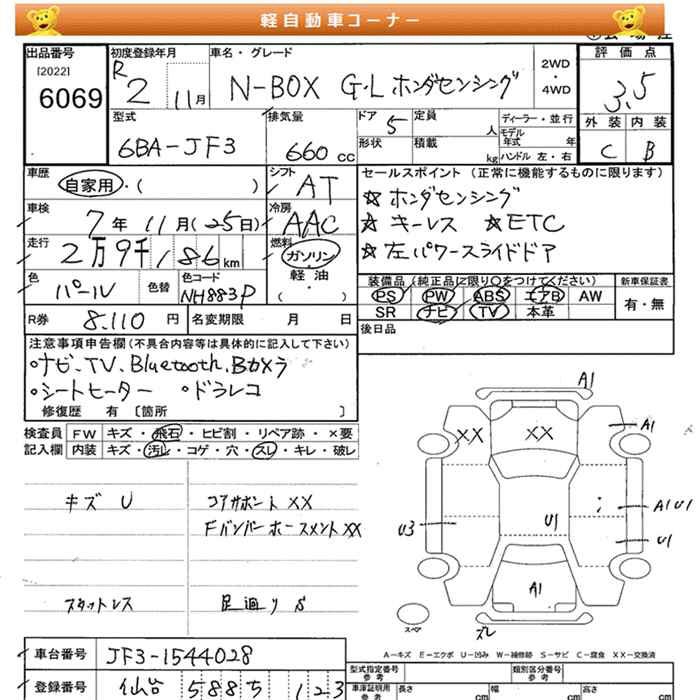 軽自動車コーナー
出品番号
[2022]
6069
初度登録年月
R2 11月
車名・グレード
N-BOX G・L ホンダセンシング
2WD
・
4WD
評価点
3.5
外装 内装
C B
型式
6BA-JF3
排気量
660 cc
ドア 5
形状
定員 人
積載 kg
ディーラー・並行
モデル年式 年
ハンドル 左・右
車歴
自家用・( )
シフト AT
車検
7年11月(25日)
冷房 AAC
走行
2万9千186km
燃料
ガソリン
・
軽油
( )
色
パール
色替
色コード
NH883P
R券 8.110 円
名変期限 月 日
セールスポイント (正常に機能するものに限ります)
☆ ホンダセンシング
☆ キーレス ☆ETC
☆ 左パワースライドドア
装備品(純正品に限り○をつけてください)
PS PW ABS エアB AW
SR ナビ TV 本革
新車保証書
有・無
後日品
注意事項申告欄(不具合内容等は具体的に記入して下さい)
◦ナビ、TV、Bluetooth、Bカメラ
◦シートヒーター ◦ドラレコ
修復歴 有 〔箇所 〕
検査員記入欄
FW キズ・飛石・ヒビ割・リペア跡・×要
内装 キズ・汚れ・コゲ・穴・スレ・キレ・破レ
キズ U
コアサポート XX
Fバンパーホースメント XX
スタットレス
足廻り S
A1
XX
XX
A1
U3
U1
A1 U1
U1
A1
スペア
ズレ
A-キズ E-エクボ U-凹み W-補修跡 S-サビ C-腐食 XX-交換済
車台番号 JF3-1544028
登録番号 仙台 588 ち 123
型式指定番号
参考
類別区分番号
参考
車庫証明用
参考
長さ cm
幅 cm
高さ cm